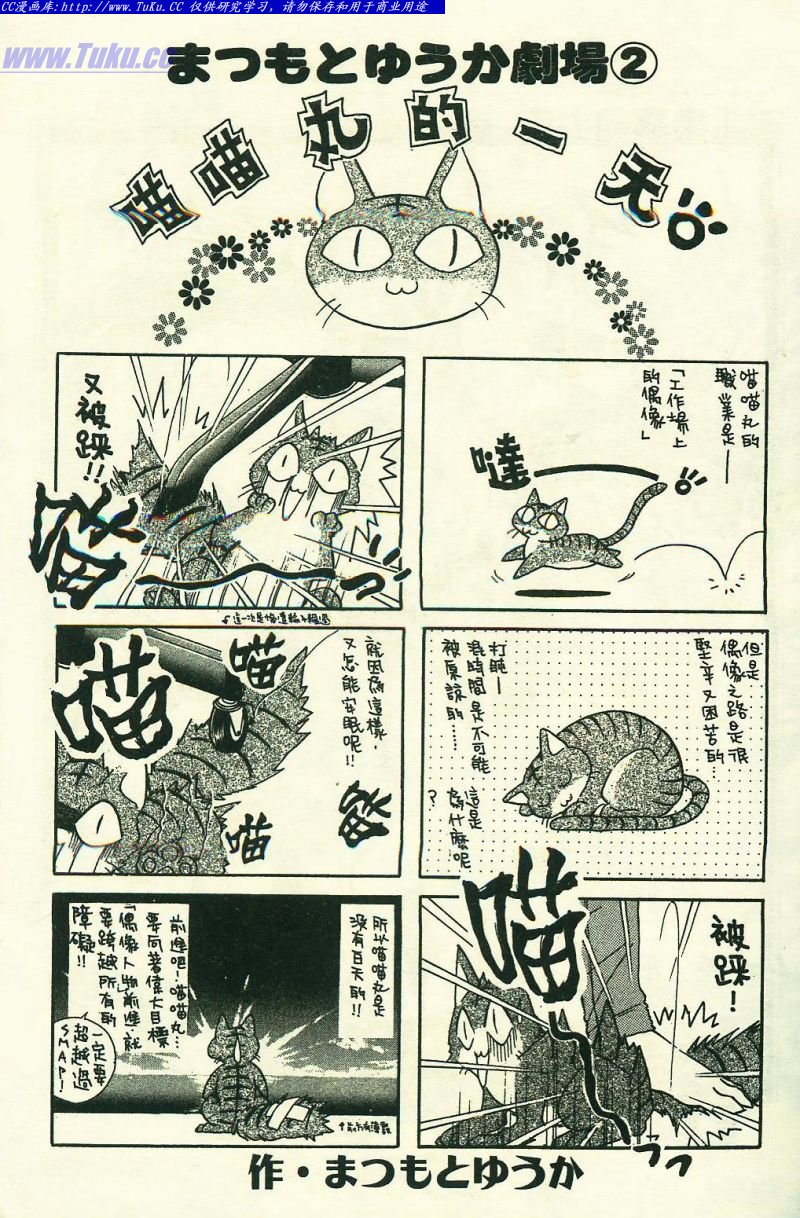 CC漫画库:http://www.TuKu.CC 仅供研究学习，请勿保存和用于商业用途
www.Tuku.cc
まつもとゆうか劇場②
喵喵丸的一天
喵喵丸的
職業是—
「工作場上
的偶像」
噠
但是
偶像之路是很
堅辛又困苦的…
打盹—
混時間是不可能
被原諒的……
這是
為什麼呢
?
被踩！
喵
又被踩!!
就因為這樣，
又怎能安眠呢!!
喵
喵
喵
所以喵喵丸是
沒有白天的!!
前進吧！喵喵丸…
要向著偉大目標
「偶像人物」前進，就
要跨越所有的
障礙!!
一定要
超越過
SMAP!
作・まつもとゆうか